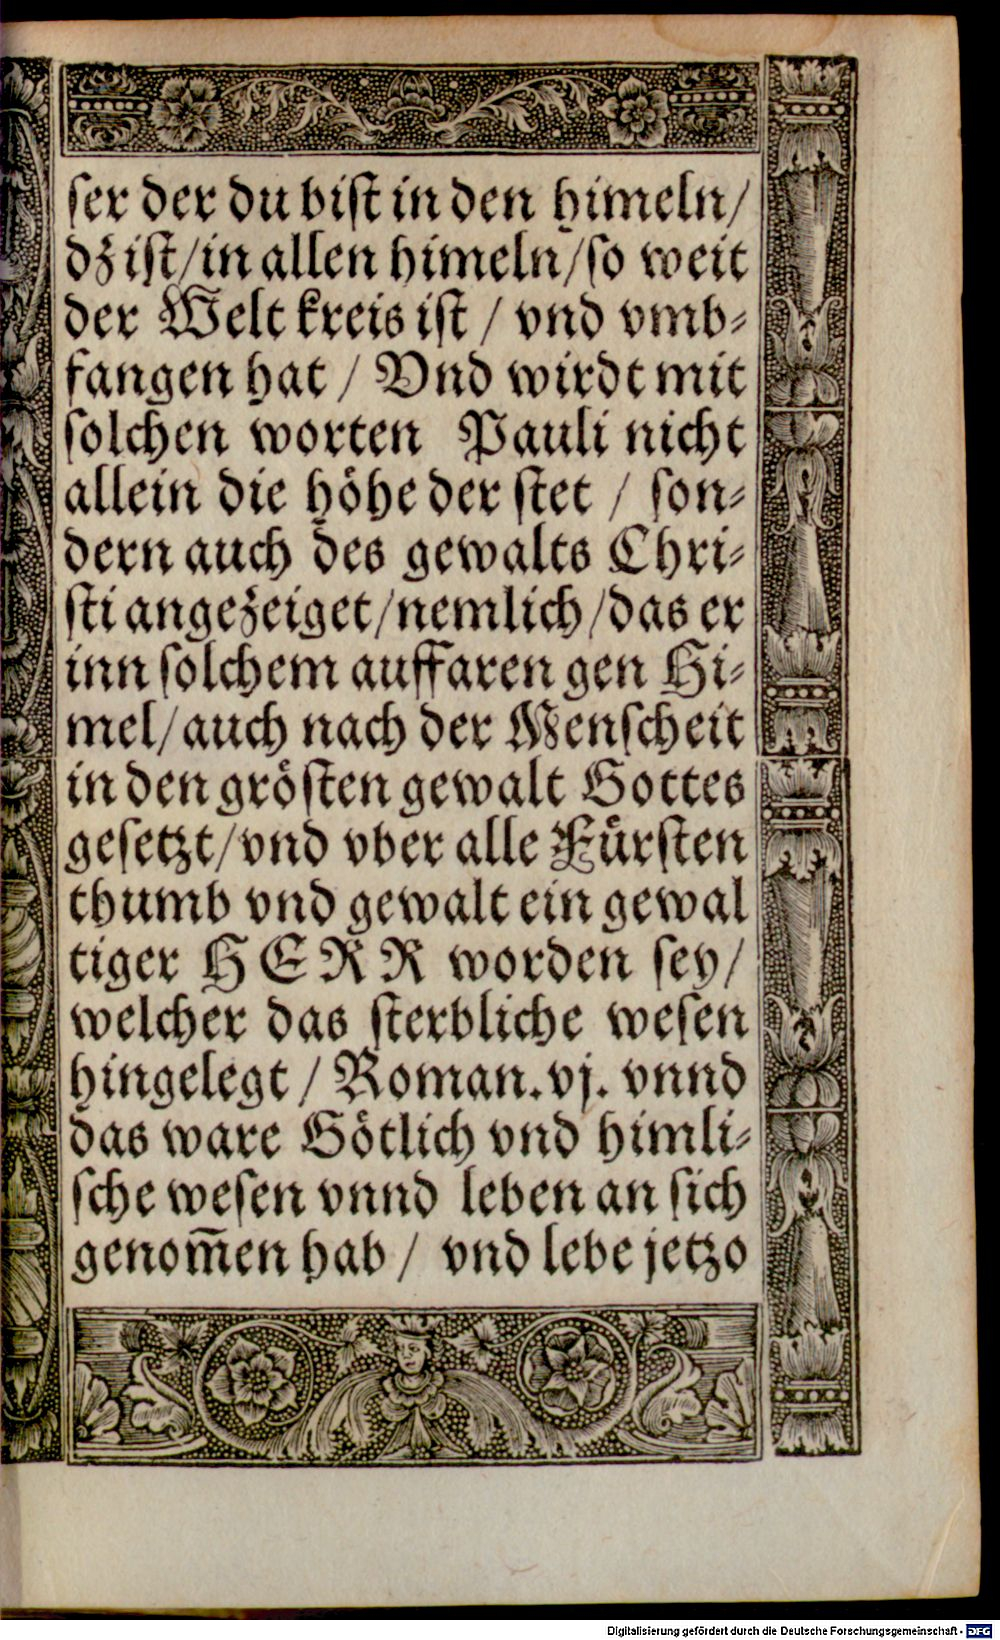 ſer der du biſt in den himeln/
dz iſt/in allen himeln/ſo weit
der Welt kreis iſt / vnd vmb⸗
fangen hat / Vnd wirdt mit
ſolchen worten Pauli nicht
allein die höhe der ſtet / ſon⸗
dern auch des gewalts Chri⸗
ſti angezeiget/nemlich/das er
inn ſolchem auffaren gen Hi⸗
mel/auch nach der Menſcheit
in den gröſten gewalt Gottes
geſetzt/vnd vber alle Fürſten
thumb vnd gewalt ein gewal
tiger HERR worden ſey/
welcher das ſterbliche weſen
hingelegt / Roman.vj. vnnd
das ware Götlich vnd himli⸗
ſche weſen vnnd leben an ſich
genom̃en hab / vnd lebe jetzo
Digitalisierung gefördert durch die Deutsche Forschungsgemeinschaft - DFG